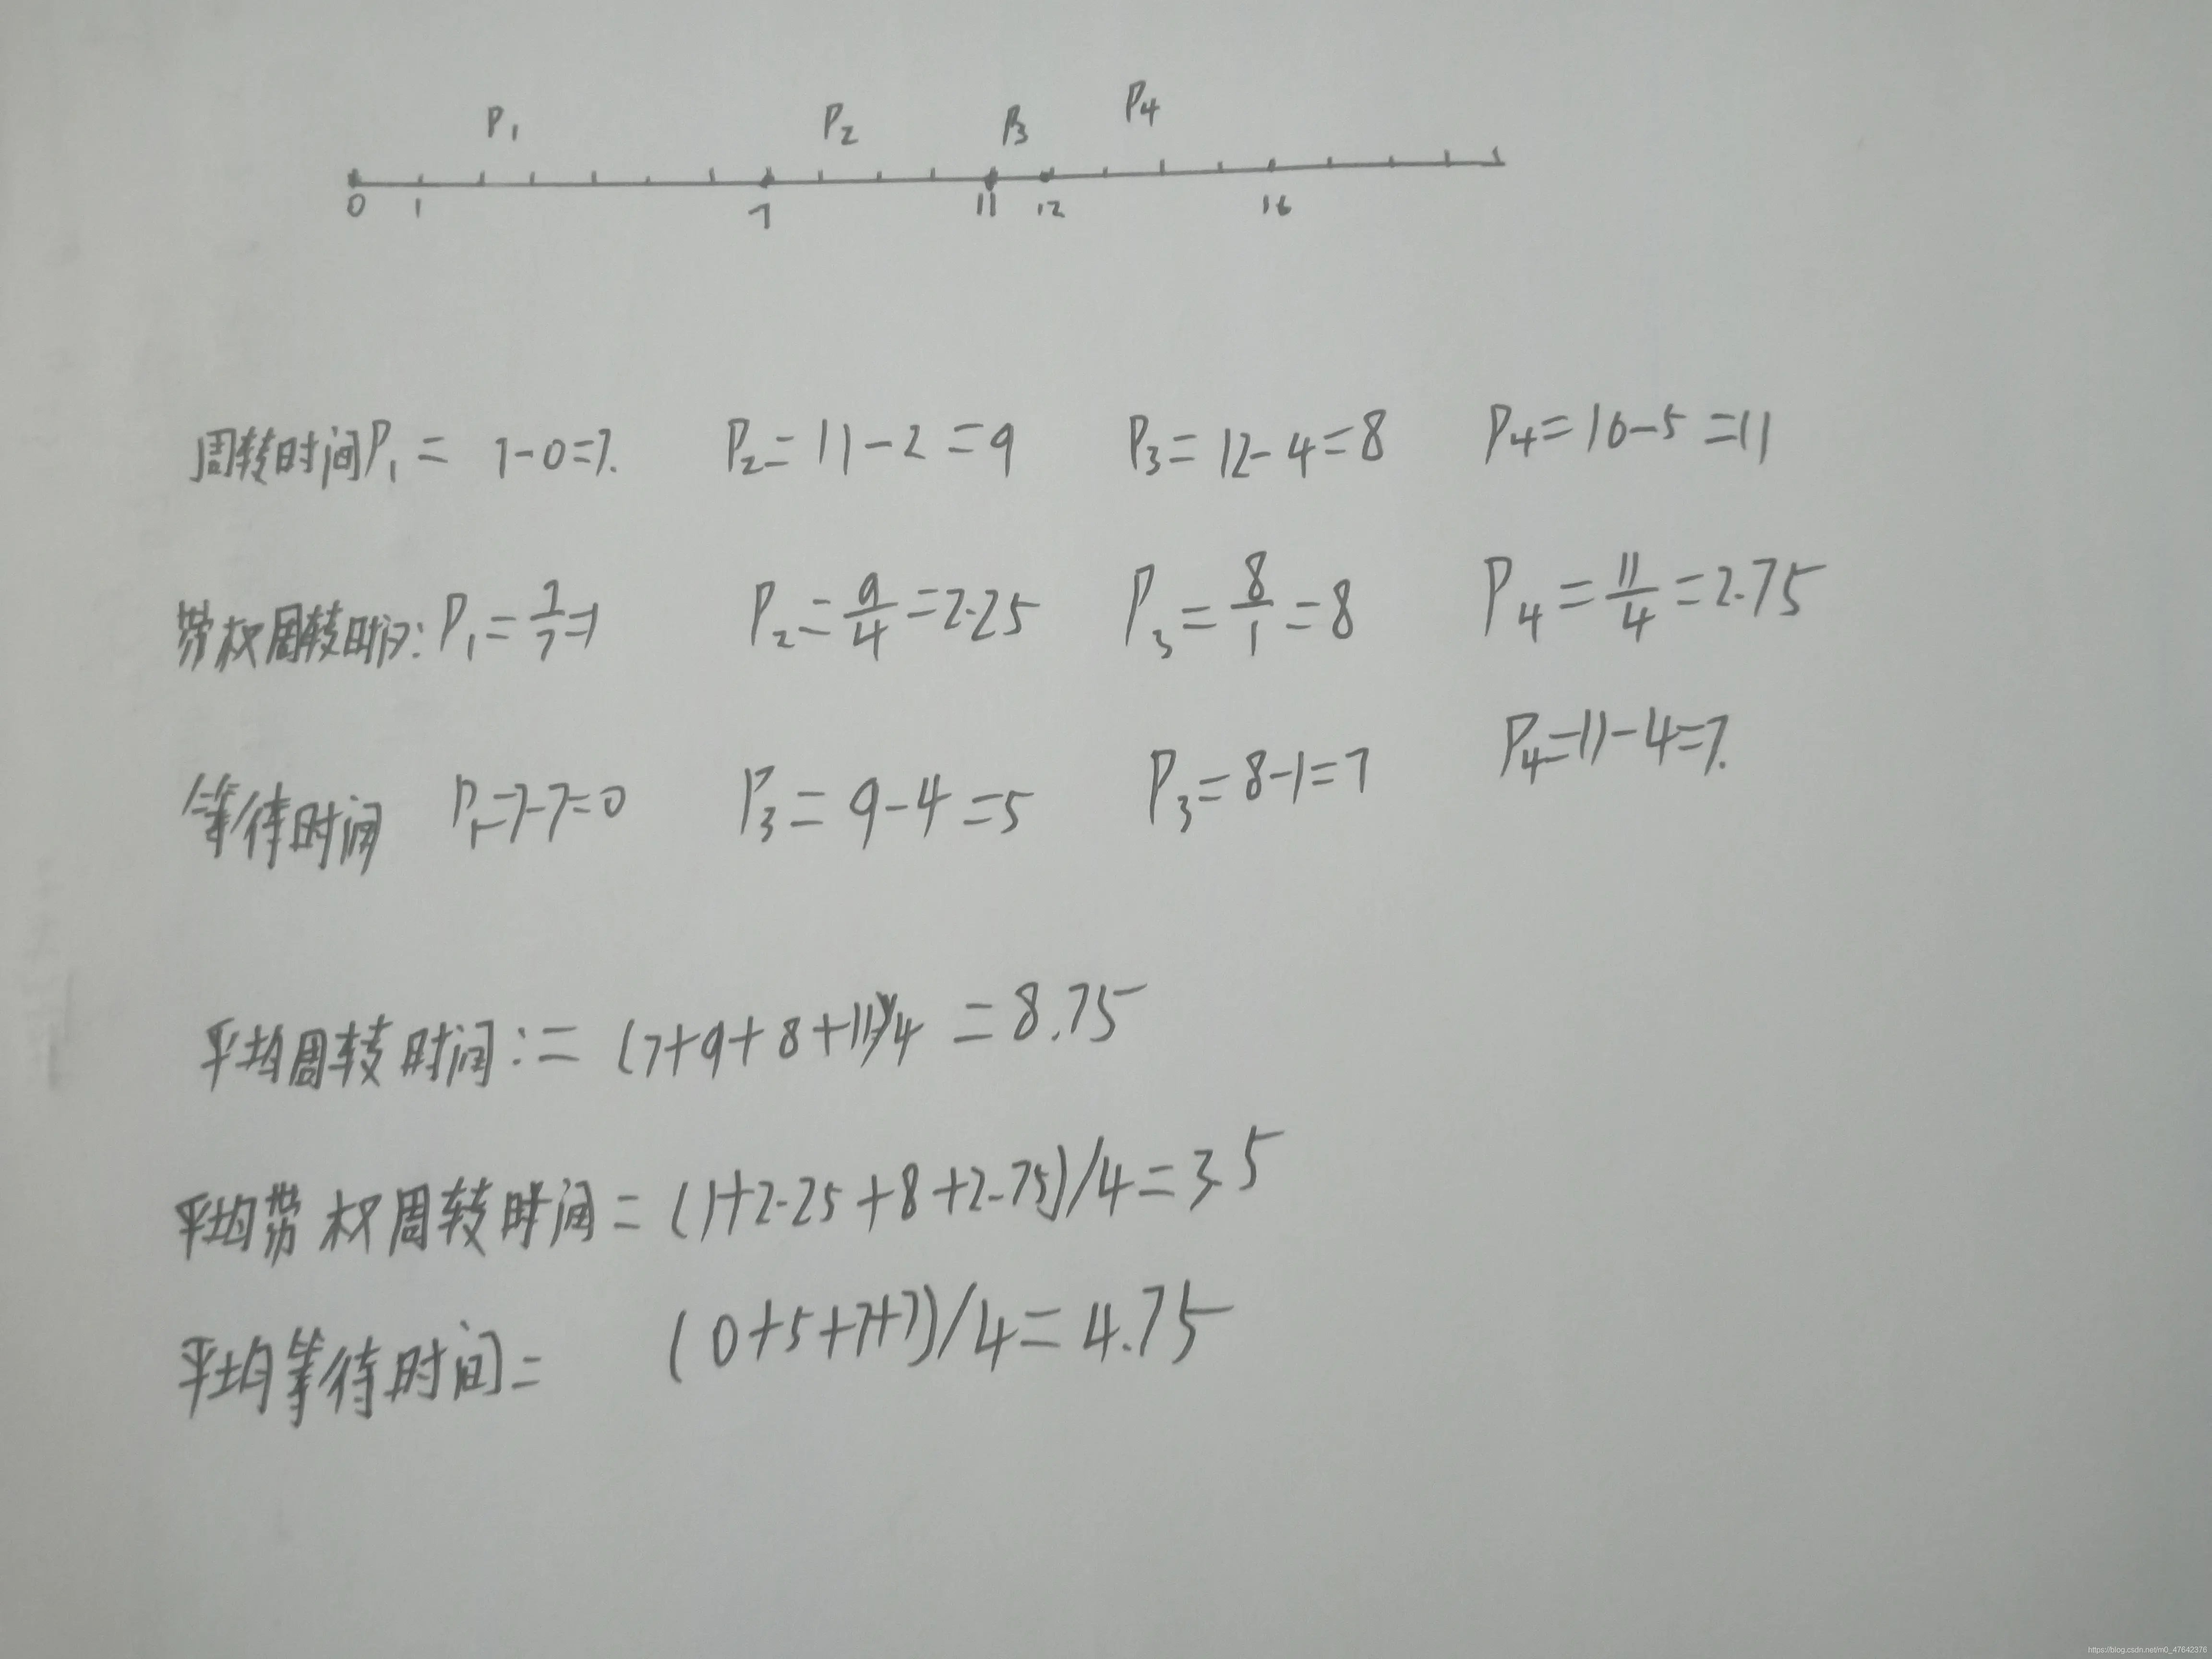 P1 P2 P3 P4
0 1 7 11 12 16
周转时间P1 = 7-0=7. P2= 11-2=9 P3= 12-4=8 P4=16-5=11
带权周转时间: P1=7/7=1 P2=9/4=2.25 P3=8/1=8 P4=11/4=2.75
等待时间 P1=7-7=0 P3=9-4=5 P3=8-1=7 P4=11-4=7.
平均周转时间:= (7+9+8+11)/4 =8.75
平均带权周转时间=(1+2.25+8+2.75)/4=3.5
平均等待时间= (0+5+7+7)/4=4.75
https://blog.csdn.net/m0_47642376